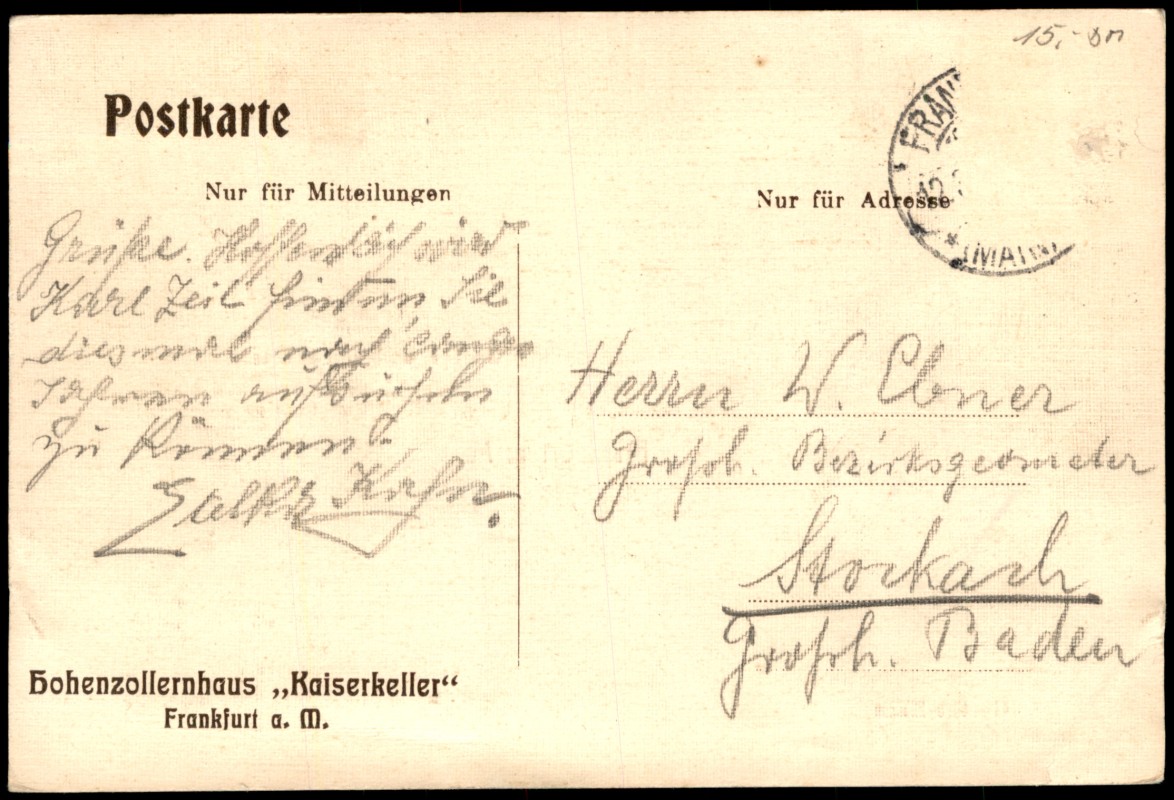 15,-
Postkarte
Nur für Mitteilungen
Nur für Adresse
FRAN
12.
* (MAIN
Grüße. Hoffentlich wird
Karl Zeit finden, Sie
diesmal nach langen
Jahren aufsuchen
zu können.
Kahn.
Herrn W. Ebner
Großh. Bezirksgeometer
Stockach
Großh. Baden
Hohenzollernhaus „Kaiserkeller“
Frankfurt a. M.